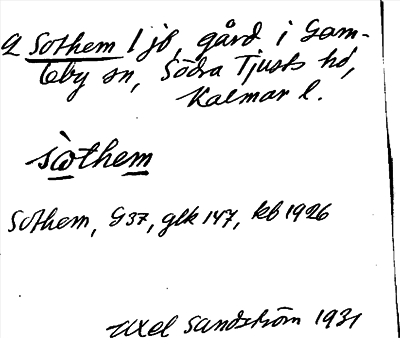 Sothem 1 jb, gård i Gam-
leby sn, Södra Tjusts hd,
Kalmar l.
sὼthem
Sothem, G37, glk 147, kb 1926
Axel Sandström 1931